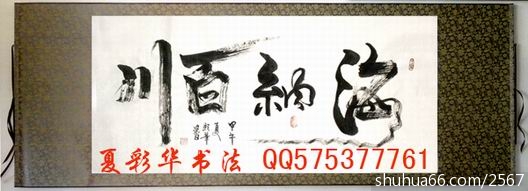 海納百川
甲午
夏
彩華
書
夏彩华书法 QQ575377761
shuhua66.com/2567